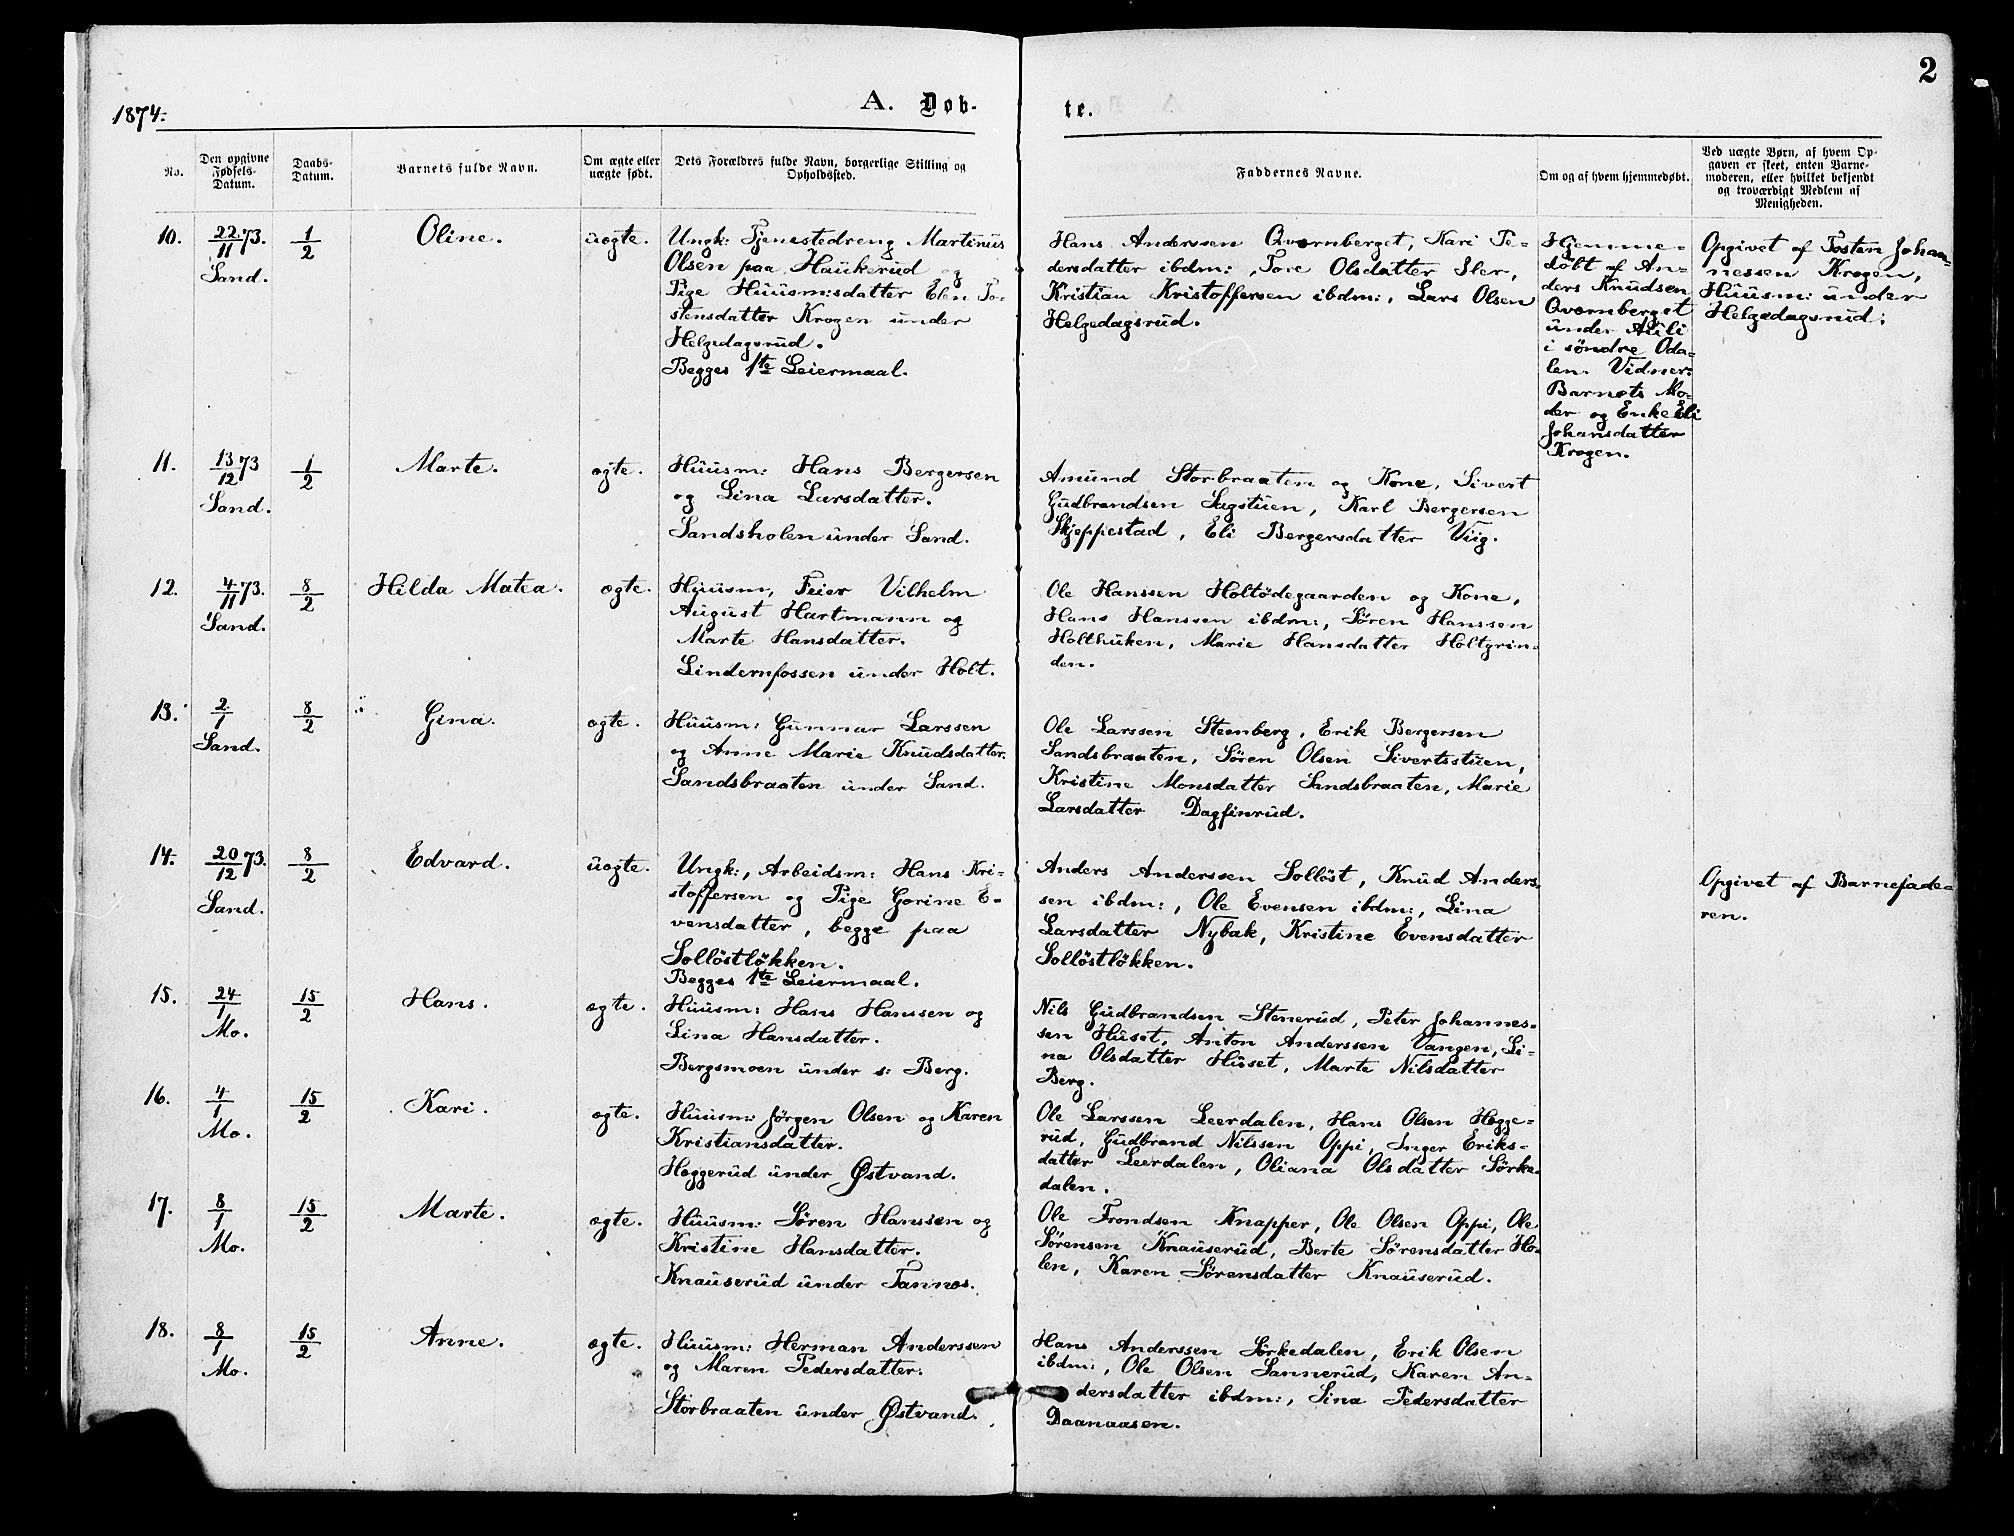 2
1874.
A. Døb-
te.
No.
Den opgivne
Fødsels-
Datum.
Daabs-
Datum.
Barnets fulde Navn.
Om ægte eller
uægte født.
Dets Forældres fulde Navn, borgerlige Stilling og
Opholdssted.
Faddernes Navne.
Om og af hvem hjemmedøbt.
Ved uægte Børn, af hvem Op-
gaven er skeet, enten Barne-
moderen, eller hvilket bekjendt
og troværdigt Medlem af
Menigheden.
10.
22/11 73.
Sand.
1/2
Oline.
uægte.
Ungk: Tjenestedreng Martinus
Olsen paa Haukerud og
Pige Huusm:sdatter Elen To-
stensdatter Krogen under
Helgedagsrud.
Begges 1te Leiermaal.
Hans Anderssen Qværnberget, Kari Pe-
dersdatter ibdm:, Tore Olsdatter Sler,
Kristian Kristoffersen ibdm:, Lars Olsen
Helgedagsrud.
Hjemme-
døbt af An-
ders Knudsen
Qværnberget
under Alili
i søndre Oda-
len. Vidner:
Barnets Mo-
der og Enke Eli
Johansdatter
Krogen.
Opgivet af Tosten Johan-
nessen Krogen,
Huusm: under
Helgedagsrud:
11.
13/12 73
Sand.
1/2
Marte.
ægte.
Huusm: Hans Bergersen
og Lina Larsdatter.
Sandsholen under Sand.
Amund Storbraaten og Kone, Sivert
Gudbrandsen Sagstuen, Karl Bergersen
Skjeppestad, Eli Bergersdatter Viig.
12.
4/11 73.
Sand.
8/2
Hilda Matea.
ægte.
Huusm, Feier Vilhelm
August Hartmann og
Marte Hansdatter.
Lindernfossen under Holt.
Ole Hanssen Holtødegaarden og Kone,
Hans Hanssen ibdm:, Søren Hanssen
Holthuken, Marie Hansdatter Holtgrin-
den.
13.
2/1
Sand.
8/2
Gina.
ægte.
Huusm: Gunnar Larssen
og Anne Marie Knudsdatter.
Sandsbraaten under Sand.
Ole Larssen Steenberg, Erik Bergersen
Sandsbraaten, Søren Olsen Sivertsstuen,
Kristine Monsdatter Sandsbraaten, Marie
Larsdatter Dagfinrud.
14.
20/12 73.
Sand.
8/2
Edvard.
uægte.
Ungk:, Arbeidsm: Hans Kri-
stoffersen og Pige Gorine E-
vensdatter, begge paa
Solløstløkken.
Begges 1te Leiermaal.
Anders Anderssen Solløst, Knud Anders-
sen ibdm:, Ole Evensen ibdm:, Lina
Larsdatter Nybak, Kristine Evensdatter
Solløstløkken.
Opgivet af Barnefade-
ren.
15.
24/1
Mo.
15/2
Hans.
ægte.
Huusm: Hans Hanssen og
Lina Hansdatter.
Bergsmoen under s: Berg.
Nils Gudbrandsen Stenerud, Peter Johannes-
sen Huset, Anton Anderssen Vangen, Li-
na Olsdatter Huset, Marte Nilsdatter
Berg.
16.
4/1
Mo.
15/2
Kari.
ægte.
Huusm: Jørgen Olsen og Karen
Kristiansdatter.
Heggerud under Østvand.
Ole Larssen Leerdalen, Hans Olsen Hegge-
rud, Gudbrand Nilssen Oppi, Inger Eriks-
datter Leerdalen, Oliana Olsdatter Sørke-
dalen.
17.
8/1
Mo.
15/2
Marte.
ægte.
Huusm: Søren Hanssen og
Kristine Hansdatter.
Knauserud under Tannæs.
Ole Trondsen Knapper, Ole Olsen Oppi, Ole
Sørensen Knauserud, Berte Sørensdatter Ho-
len, Karen Sørensdatter Knauserud.
18.
8/1
Mo.
15/2
Anne.
ægte.
Huusm: Herman Anderssen
og Maren Pedersdatter.
Storbraaten under Østvand.
Hans Anderssen Sørkedalen, Erik Olsen
ibdm:, Ole Olsen Sannerud, Karen An-
dersdatter ibdm:, Lina Pedersdatter
Daanaasen.